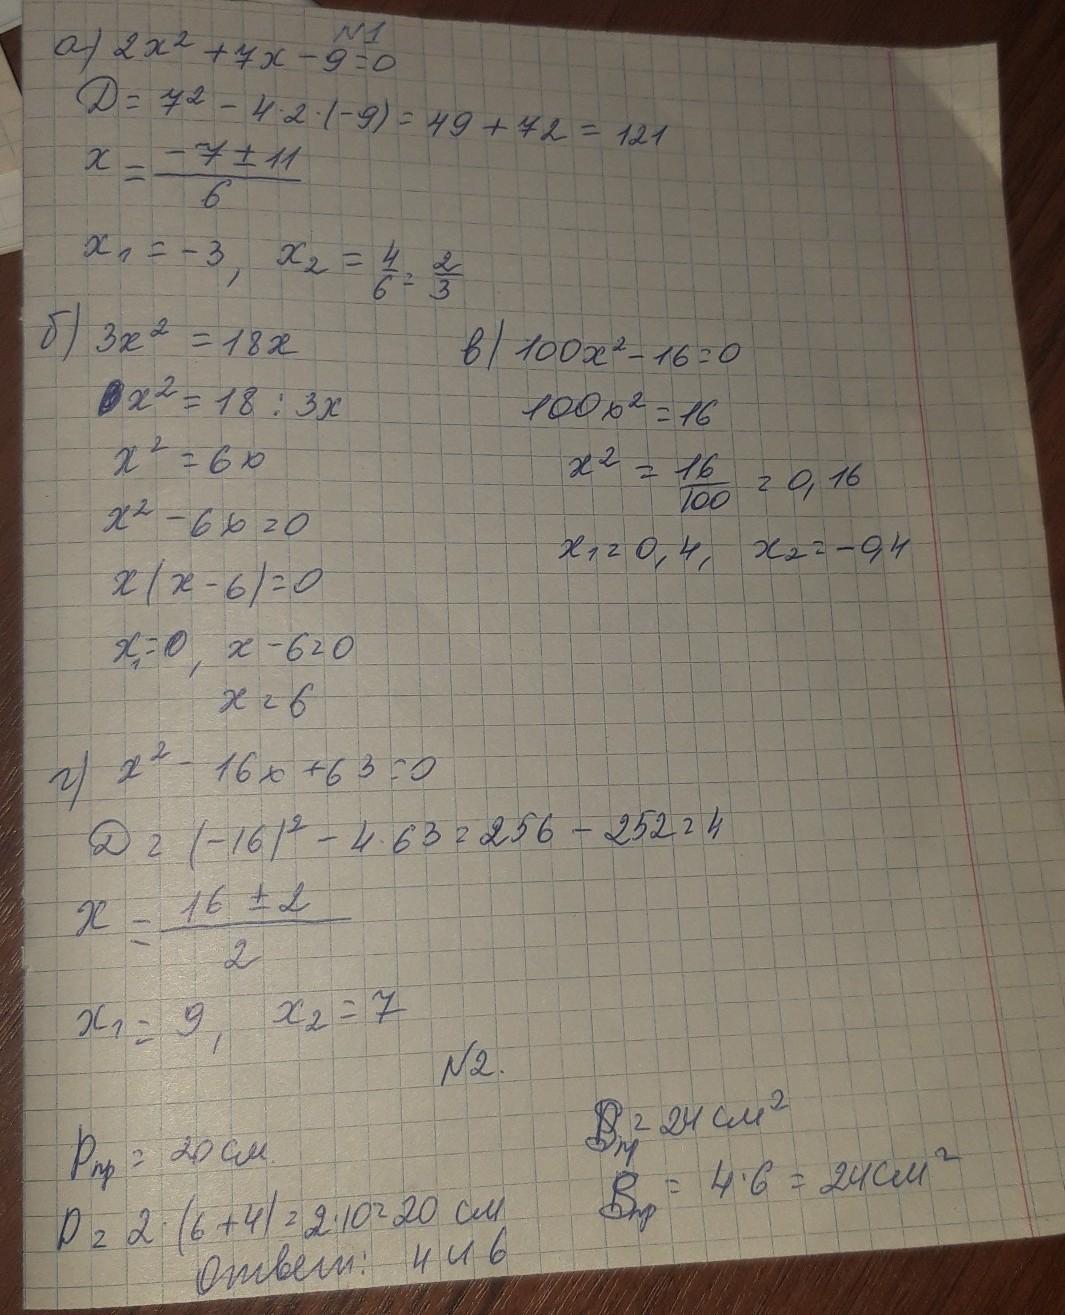 N1
а) 2x² + 7x - 9 = 0
D = 7² - 4·2·(-9) = 49 + 72 = 121
x = (-7 ± 11)/6
x₁ = -3, x₂ = 4/6 = 2/3
б) 3x² = 18x
x² = 18 : 3x
x² = 6x
x² - 6x = 0
x(x - 6) = 0
x₁ = 0, x - 6 = 0
x = 6
в) 100x² - 16 = 0
100x² = 16
x² = 16/100 = 0,16
x₁ = 0,4, x₂ = -0,4
г) x² - 16x + 63 = 0
D = (-16)² - 4·63 = 256 - 252 = 4
x = (16 ± 2)/2
x₁ = 9, x₂ = 7
N2.
Pпр = 20 см
Sпр = 24 см²
P = 2·(6+4) = 2·10 = 20 см
Sпр = 4·6 = 24 см²
Ответ: 4 и 6